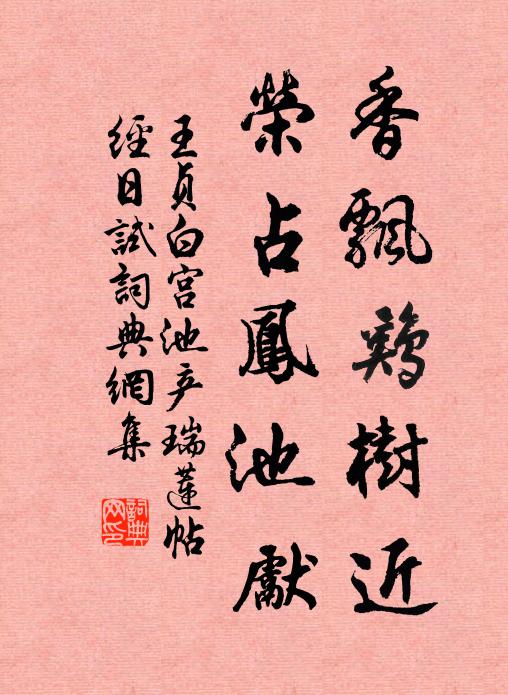 香飄鷄樹近
榮占鳳池獻
王貞白宮池产瑞蓮帖
經日試詞典網集
詞典網印